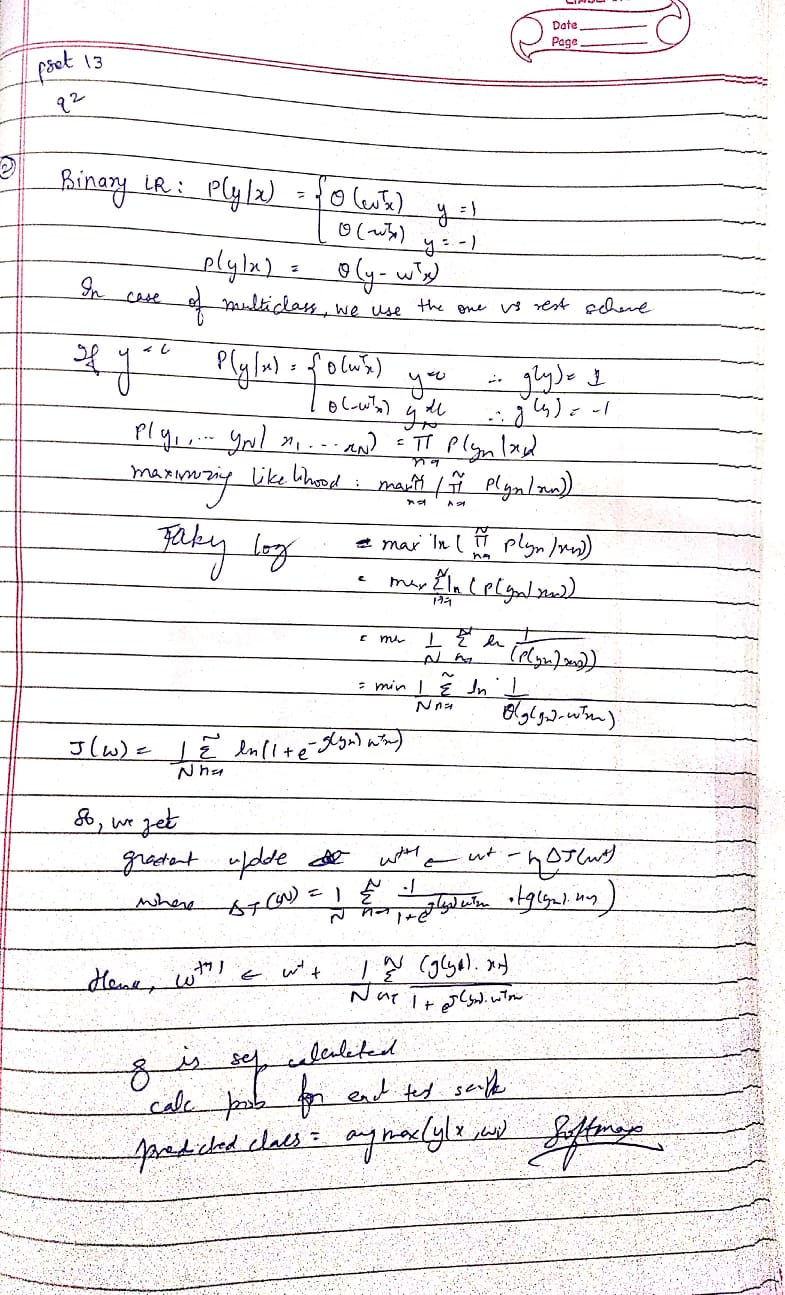 Date
Page
pset 13
q2
②
Binary LR: P(y/x) = { θ(wᵀx) y = 1
θ(-wᵀx) y = -1
P(y/x) = θ(y - wᵀx)
In case of multiclass, we use the one vs rest scheme
If y = c P(y/x) = { θ(wᵀx) y=c ∴ g(y) = 1
θ(-wᵀx) y≠c ∴ g(y) = -1
P(y₁, ... yN | x₁ ... xN) = Π P(yn | xn)
maximizing likelihood : max ( Π P(yn/xn))
Taking log = max ln ( Π P(yn/xn))
= max Σ ln (P(yn/xn))
= 1/N Σ ln 1/(P(yn/xn))
= min 1/N Σ ln 1/θ(g(yn)-wᵀxn)
J(w) = 1/N Σ ln(1+e^-g(yn)wᵀxn)
So, we get
gradient update w^t+1 ← wt - η ΔJ(wt)
where ΔJ(w) = 1/N Σ -1/1+e^g(yn)wᵀxn . +g(yn).xn)
Hence, w^t+1 ← wt + 1/N Σ (g(yn).xn)/1+e^g(yn).wᵀxn
8 is sep calculated
calc prob for test
predicted class = argmax(y/x, wi) Softmax